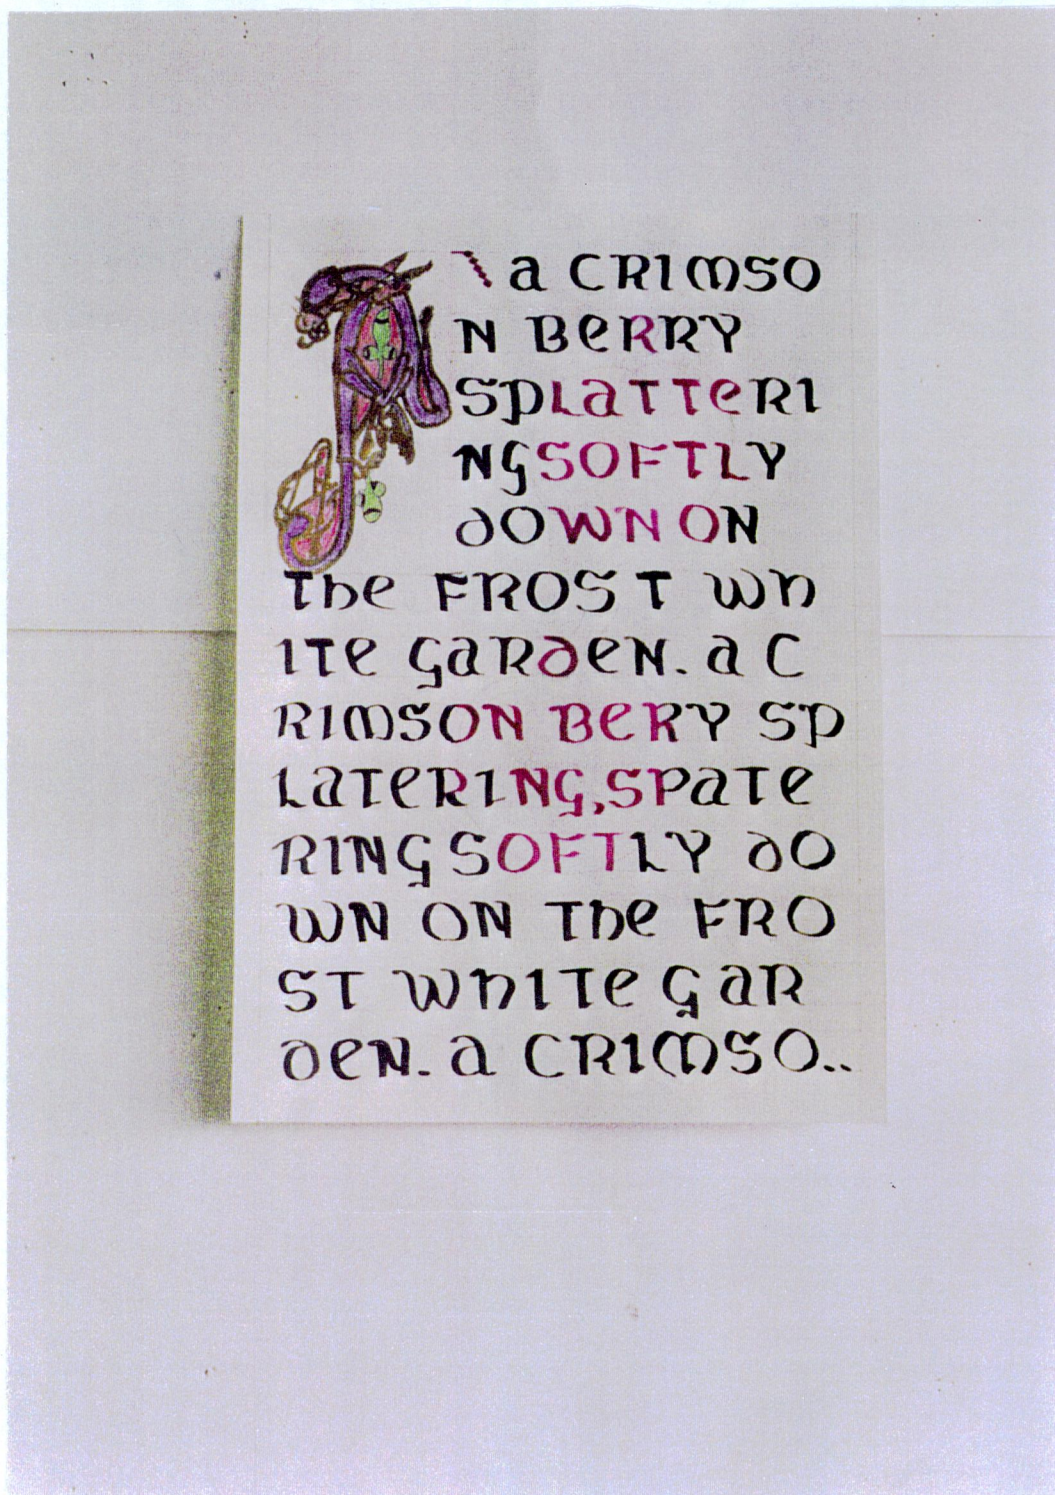 A a CRIMSO
N BeRRY
SPLaTTeRI
NGSOFTLY
dOWN ON
The FROST Wh
ITe GaRdeN. a C
RIMSON BeRY SP
LaTeRING,SPaTe
RINGSOFTLY dO
WN ON The FRO
ST WhITe GaR
deN. a CRIMSO..